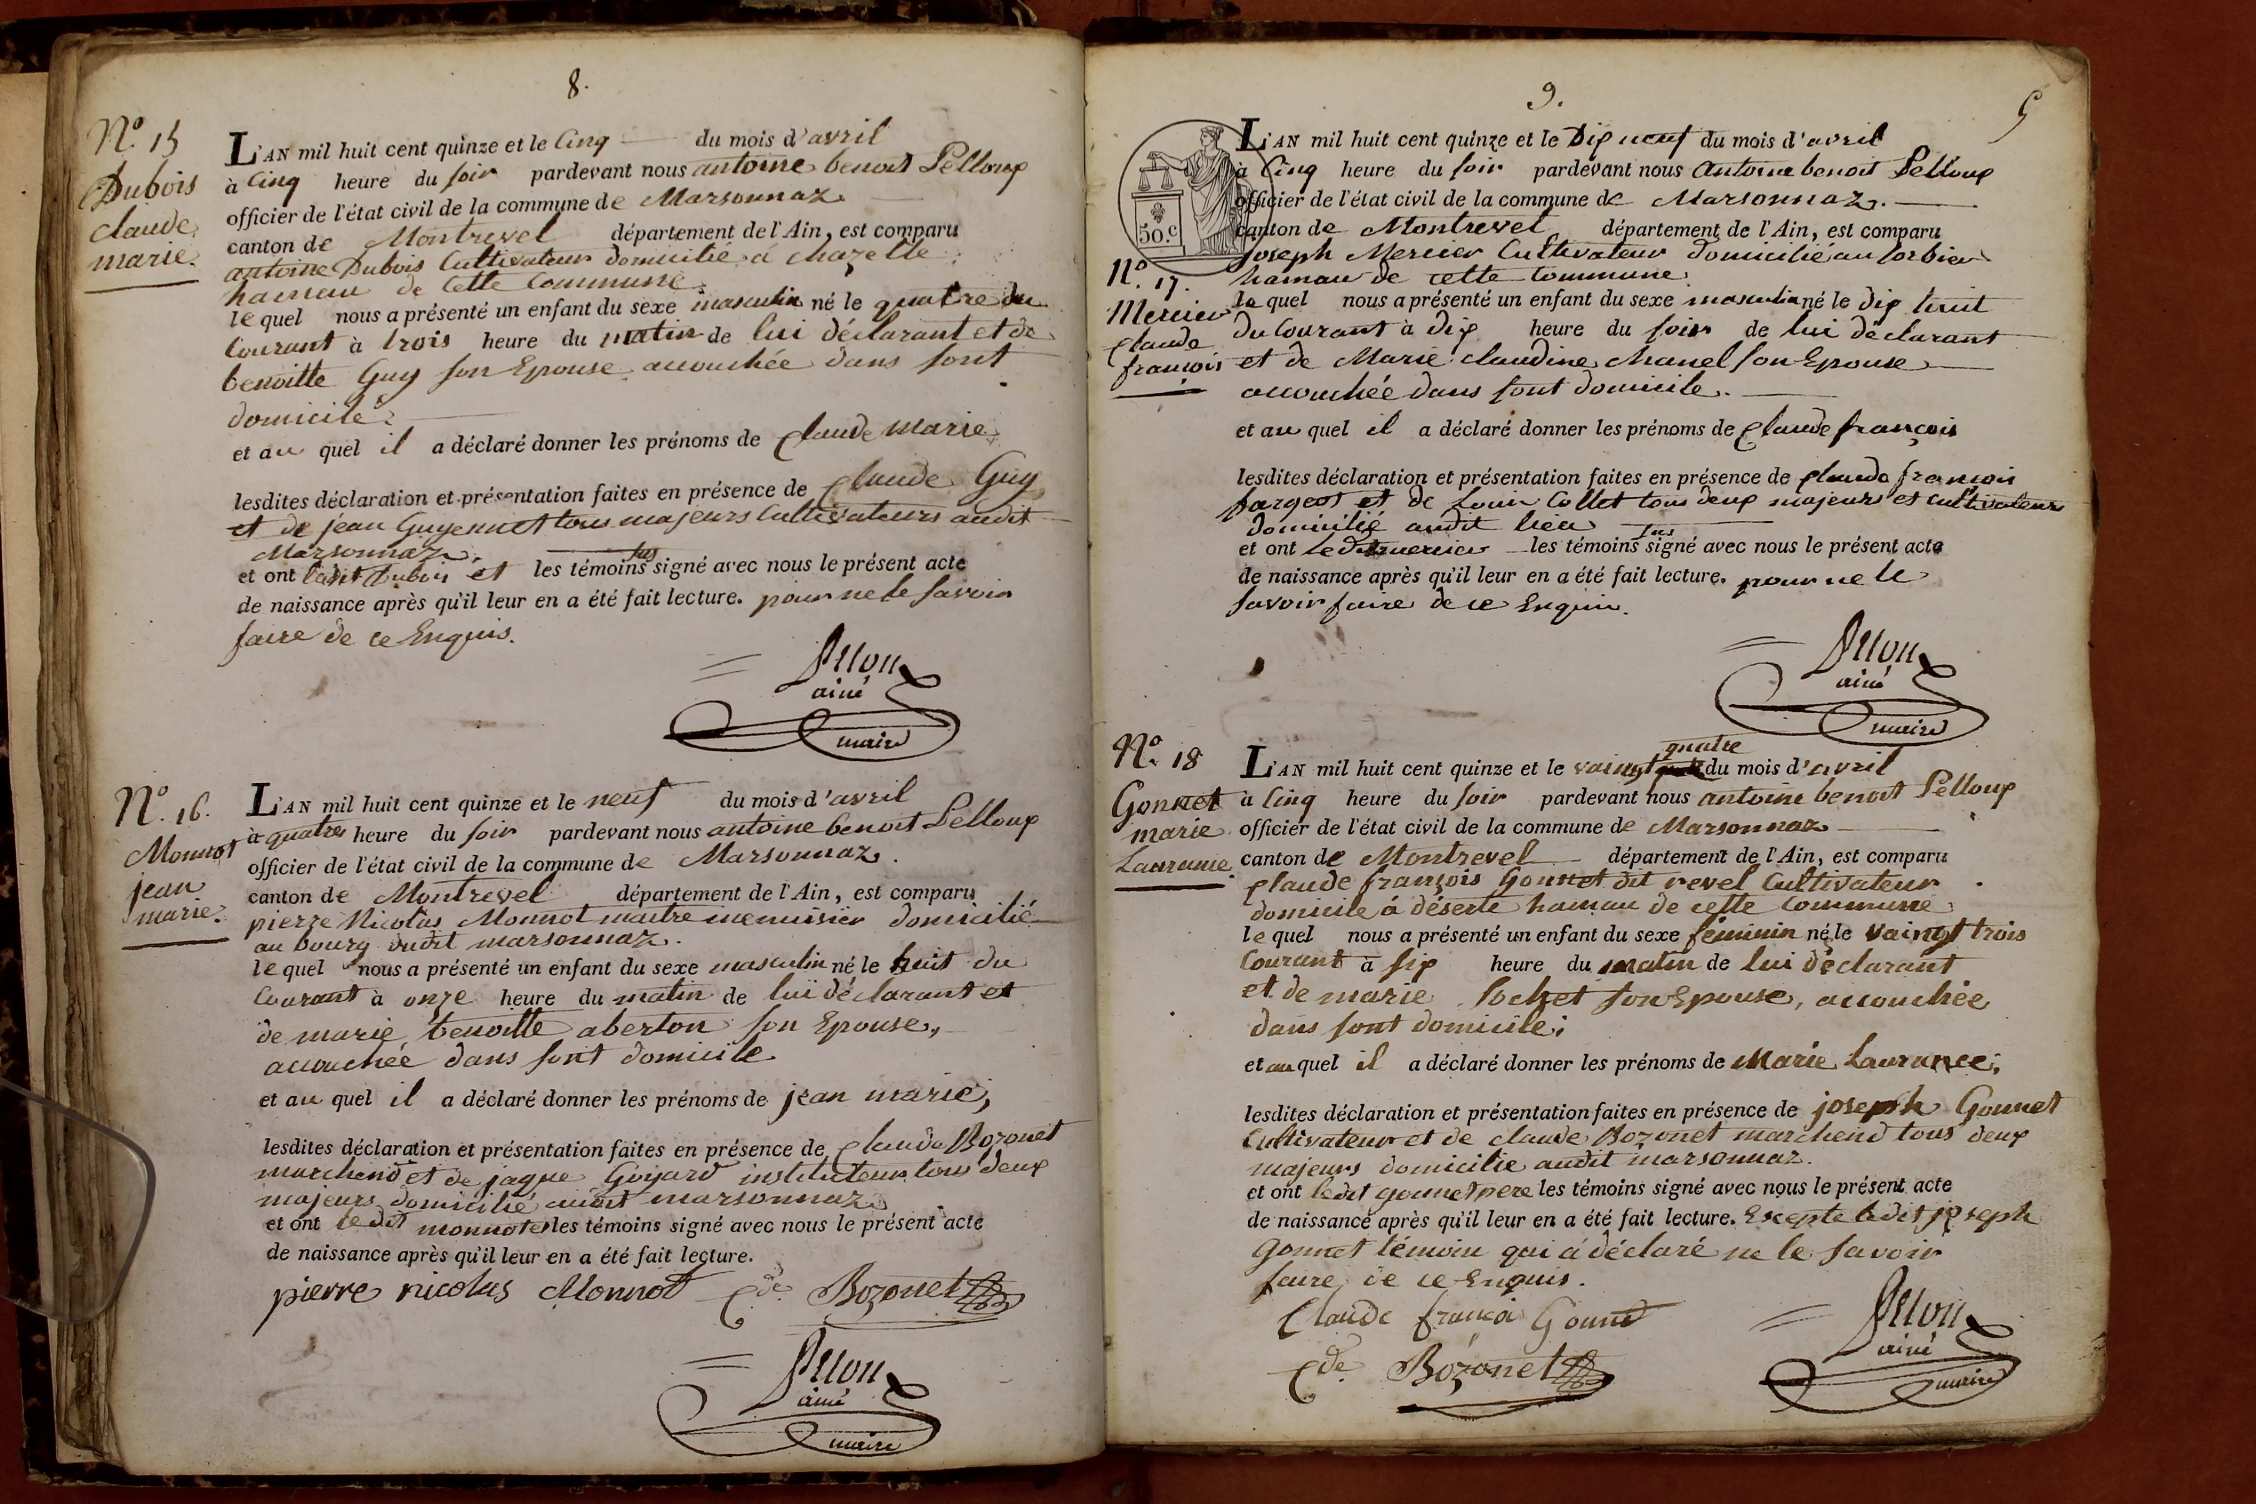 8.
N.º 15
Dubois
claude
marie.
L'AN mil huit cent quinze et le Cinq du mois d'avril
à Cinq heure du soir pardevant nous antoine benoit Pelloux
officier de l'état civil de la commune de Marsonnaz
canton de Montrevel département de l'Ain, est comparu
antoine Dubois Cultivateur domicilié à chazelle
hameau de Cette Commune
lequel nous a présenté un enfant du sexe masculin né le quatre du
Courant à trois heure du matin de lui déclarant et de
benoitte Guy son Epouse accouchée dans sont
domicile.
et au quel il a déclaré donner les prénoms de Claude marie
lesdites déclaration et présentation faites en présence de Claude Guy
et de jean Guyennet tous majeurs Cultivateurs audit
Marsonnaz.
et ont ledit Dubois et les témoins sus signé avec nous le présent acte
de naissance après qu'il leur en a été fait lecture. pour ne le savoir
faire de ce Enquis.
Pellou
ainé
maire
N.º 16.
Monnot
jean
marie.
L'AN mil huit cent quinze et le neuf du mois d'avril
à quatre heure du soir pardevant nous antoine benoit Pelloux
officier de l'état civil de la commune de Marsonnaz.
canton de Montrevel département de l'Ain, est comparu
pierre Nicolas Monnot maitre menuisier domicilié
au bourg dudit marsonnaz.
lequel nous a présenté un enfant du sexe masculin né le huit du
Courant à onze heure du matin de lui déclarant et
de marie benoitte aberton son Epouse,
accouchée dans sont domicile
et au quel il a déclaré donner les prénoms de jean marie;
lesdites déclaration et présentation faites en présence de Claude Bozonet
marchend et de jaque Goyard instituteur tous deux
majeurs domicilié audit marsonnaz
et ont ledit monnot et les témoins signé avec nous le présent acte
de naissance après qu'il leur en a été fait lecture.
pierre nicolas Monnot Cde Bozonet
Pellou
ainé
maire
9.
5
50.c
N.º 17.
Mercier
Claude
françois
L'AN mil huit cent quinze et le Dix neuf du mois d'avril
à Cinq heure du soir pardevant nous Antoine benoit Pelloux
officier de l'état civil de la commune de Marsonnaz.
canton de Montrevel département de l'Ain, est comparu
joseph Mercier Cultivateur domicilié au sorbier
hameau de cette Commune
lequel nous a présenté un enfant du sexe masculin né le dix huit
du Courant à dix heure du soir de lui déclarant
et de Marie Claudine Chanel son Epouse
accouchée dans sont domicile.
et au quel il a déclaré donner les prénoms de Claude françois
lesdites déclaration et présentation faites en présence de Claude françois
fargeot et de Louis Collet tous deux majeurs et cultivateurs
domicilié audit lieu
et ont ledit mercier les témoins sus signé avec nous le présent acte
de naissance après qu'il leur en a été fait lecture. pour ne le
savoir faire de ce Enquis.
Pellou
ainé
maire
N.º 18
Gonnet
marie
Laurance
L'AN mil huit cent quinze et le vaingt quatre du mois d'avril
à Cinq heure du soir pardevant nous antoine benoit Pelloux
officier de l'état civil de la commune de Marsonnaz
canton de Montrevel département de l'Ain, est comparu
Claude françois Gonnet dit revel Cultivateur
domicile à déserte hameau de cette Commune
lequel nous a présenté un enfant du sexe féminin né le vaingt trois
Courant à six heure du matin de lui déclarant
et de marie Pochet son Epouse, accouchée
dans sont domicile;
et au quel il a déclaré donner les prénoms de Marie Laurance;
lesdites déclaration et présentation faites en présence de joseph Gonnet
Cultivateur et de claude Bozonet marchend tous deux
majeurs domicilie audit marsonnaz.
et ont ledit gonnet pere les témoins signé avec nous le présent acte
de naissance après qu'il leur en a été fait lecture. Excepte ledit joseph
Gonnet témoin qui à déclaré ne le savoir
faire de ce Enquis.
Claude françoi Gonnet
Cde Bozonet
Pellou
ainé
maire